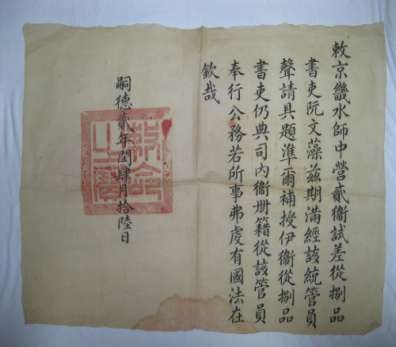 敕京畿水師中營貳衛試差從捌品
書吏阮文藻茲期滿經該統管員
聲請具題準爾補授伊衛從捌品
書吏仍典司內衛冊籍從該管員
奉行公務若所事弗虔有國法在
欽哉
嗣德貳年閏肆月拾陸日
敕命之寶